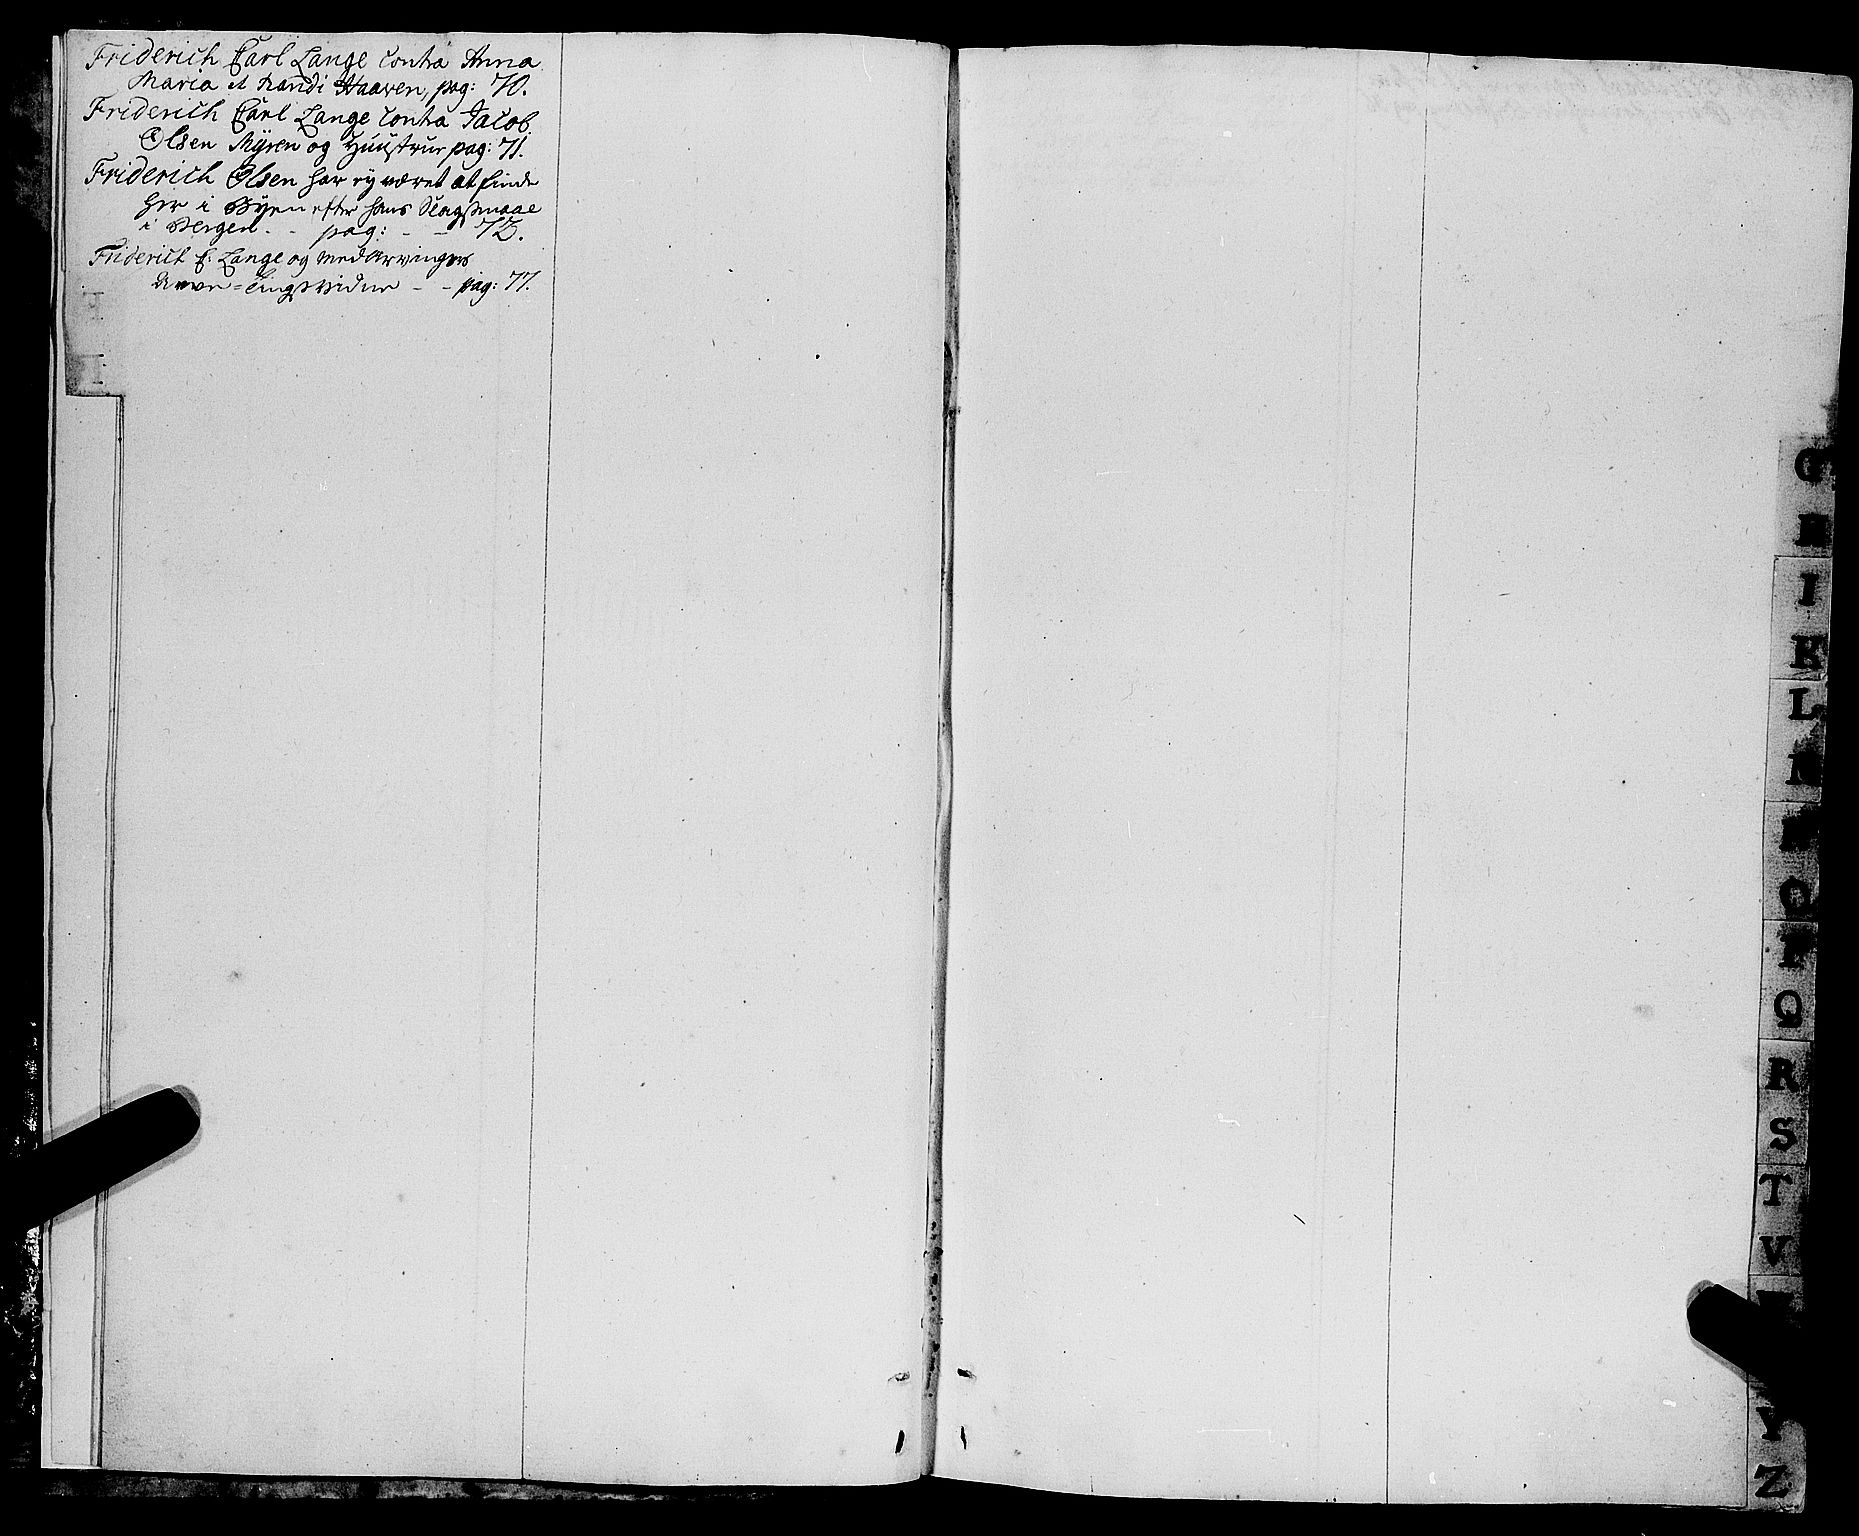 Friderich Carl Lange Contra Anna
Maria et Randi Haaven, pag: 70.
Friderich Carl Lange Contra Jacob
Olsen Myren og Huustrue pag: 71.
Friderich Olsen har ey været at finde
her i Byen efter hans Slagsmaal
i Bergen - - pag: - - 72.
Friderich C. Lange og Medarvingers
Tingsvidne - - pag: 77.
F
I
G
H
I
K
L
M
N
O
P
Q
R
S
T
V
Y
Z